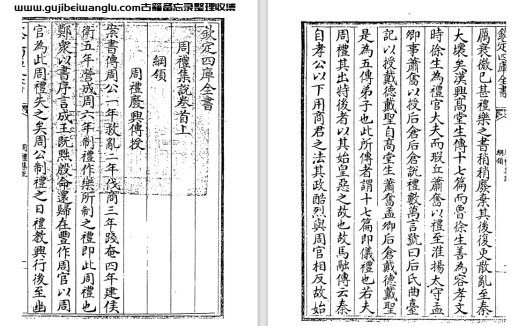 www.gujibeiwanglu.com古籍备忘录整理收集
欽定四庫全書
周禮集說卷首上
綱領
周禮廢興傳授
案書傳周公一年救亂二年伐商三年踐奄四年建侯
衛五年營成周六年制禮作樂所制之禮即此周禮也
鄭衆以書序言成王既黜殷命還歸在豐作周官以周
官為此周禮失之矣周公制禮之日禮教興行後至幽
欽定四庫全書
綱領
厲衰微已甚禮樂之書稍稍廢棄其後復更散亂至秦
大壞矣漢興高堂生傳十七篇而魯徐生善為容孝文
時徐生為禮官大夫而瑕丘蕭奮以禮至淮揚太守孟
卿事蕭奮以授后倉后倉說禮數萬言號曰后氏曲臺
記以授戴德戴聖自高堂生蕭奮孟卿后倉戴德戴聖
是為五傳弟子也此所傳者謂十七篇即儀禮也若夫
周禮其出特後者以其始皇惡之故也故馬融傳云秦
自孝公以下用商君之法其政酷烈與周官相反故始